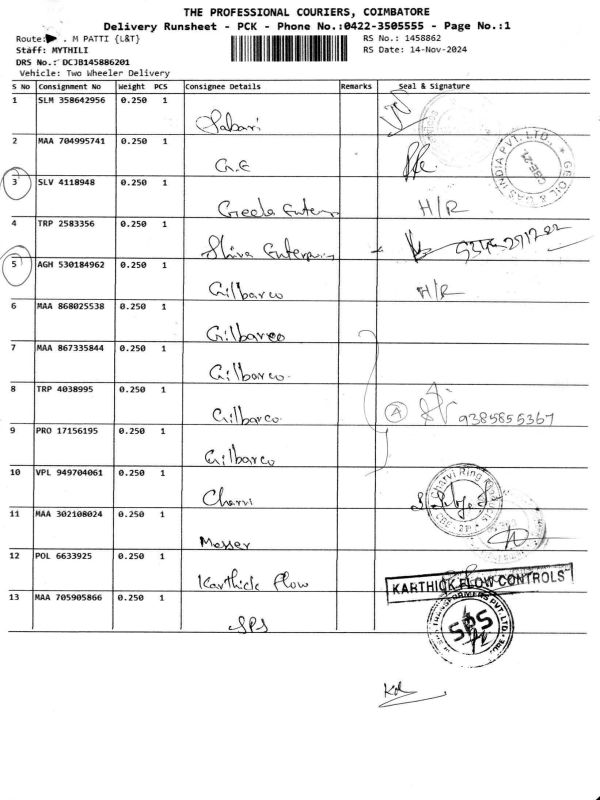 THE PROFESSIONAL COURIERS, COIMBATORE
Delivery Runsheet - PCK - Phone No.:0422-3505555 - Page No.:1
Route: . M PATTI {L&T}
RS No.: 1458862
Staff: MYTHILI
RS Date: 14-Nov-2024
DRS No.: DCJB145886201
Vehicle: Two Wheeler Delivery
S No Consignment No Weight PCS Consignee Details Remarks Seal & Signature
1 SLM 358642956 0.250 1 Sabari
2 MAA 704995741 0.250 1 G.E
GE OIL & GAS INDIA PVT. LTD., CBE-21.
3 SLV 4118948 0.250 1 Geeda Enterp H/R
4 TRP 2583356 0.250 1 Shiva Enterpris
5 AGH 530184962 0.250 1 Gilbarco H/R
6 MAA 868025538 0.250 1 Gilbarco
7 MAA 867335844 0.250 1 Gilbarco
8 TRP 4038995 0.250 1 Gilbarco A 9385855367
9 PRO 17156195 0.250 1 Gilbarco
10 VPL 949704061 0.250 1 Charvi
Charvi Ring Road CBE-21
11 MAA 302108024 0.250 1 Messer
12 POL 6633925 0.250 1 Karthick Flow
KARTHICK FLOW CONTROLS
13 MAA 705905866 0.250 1 SPS
TRANSFORMERS PVT. LTD. SPS